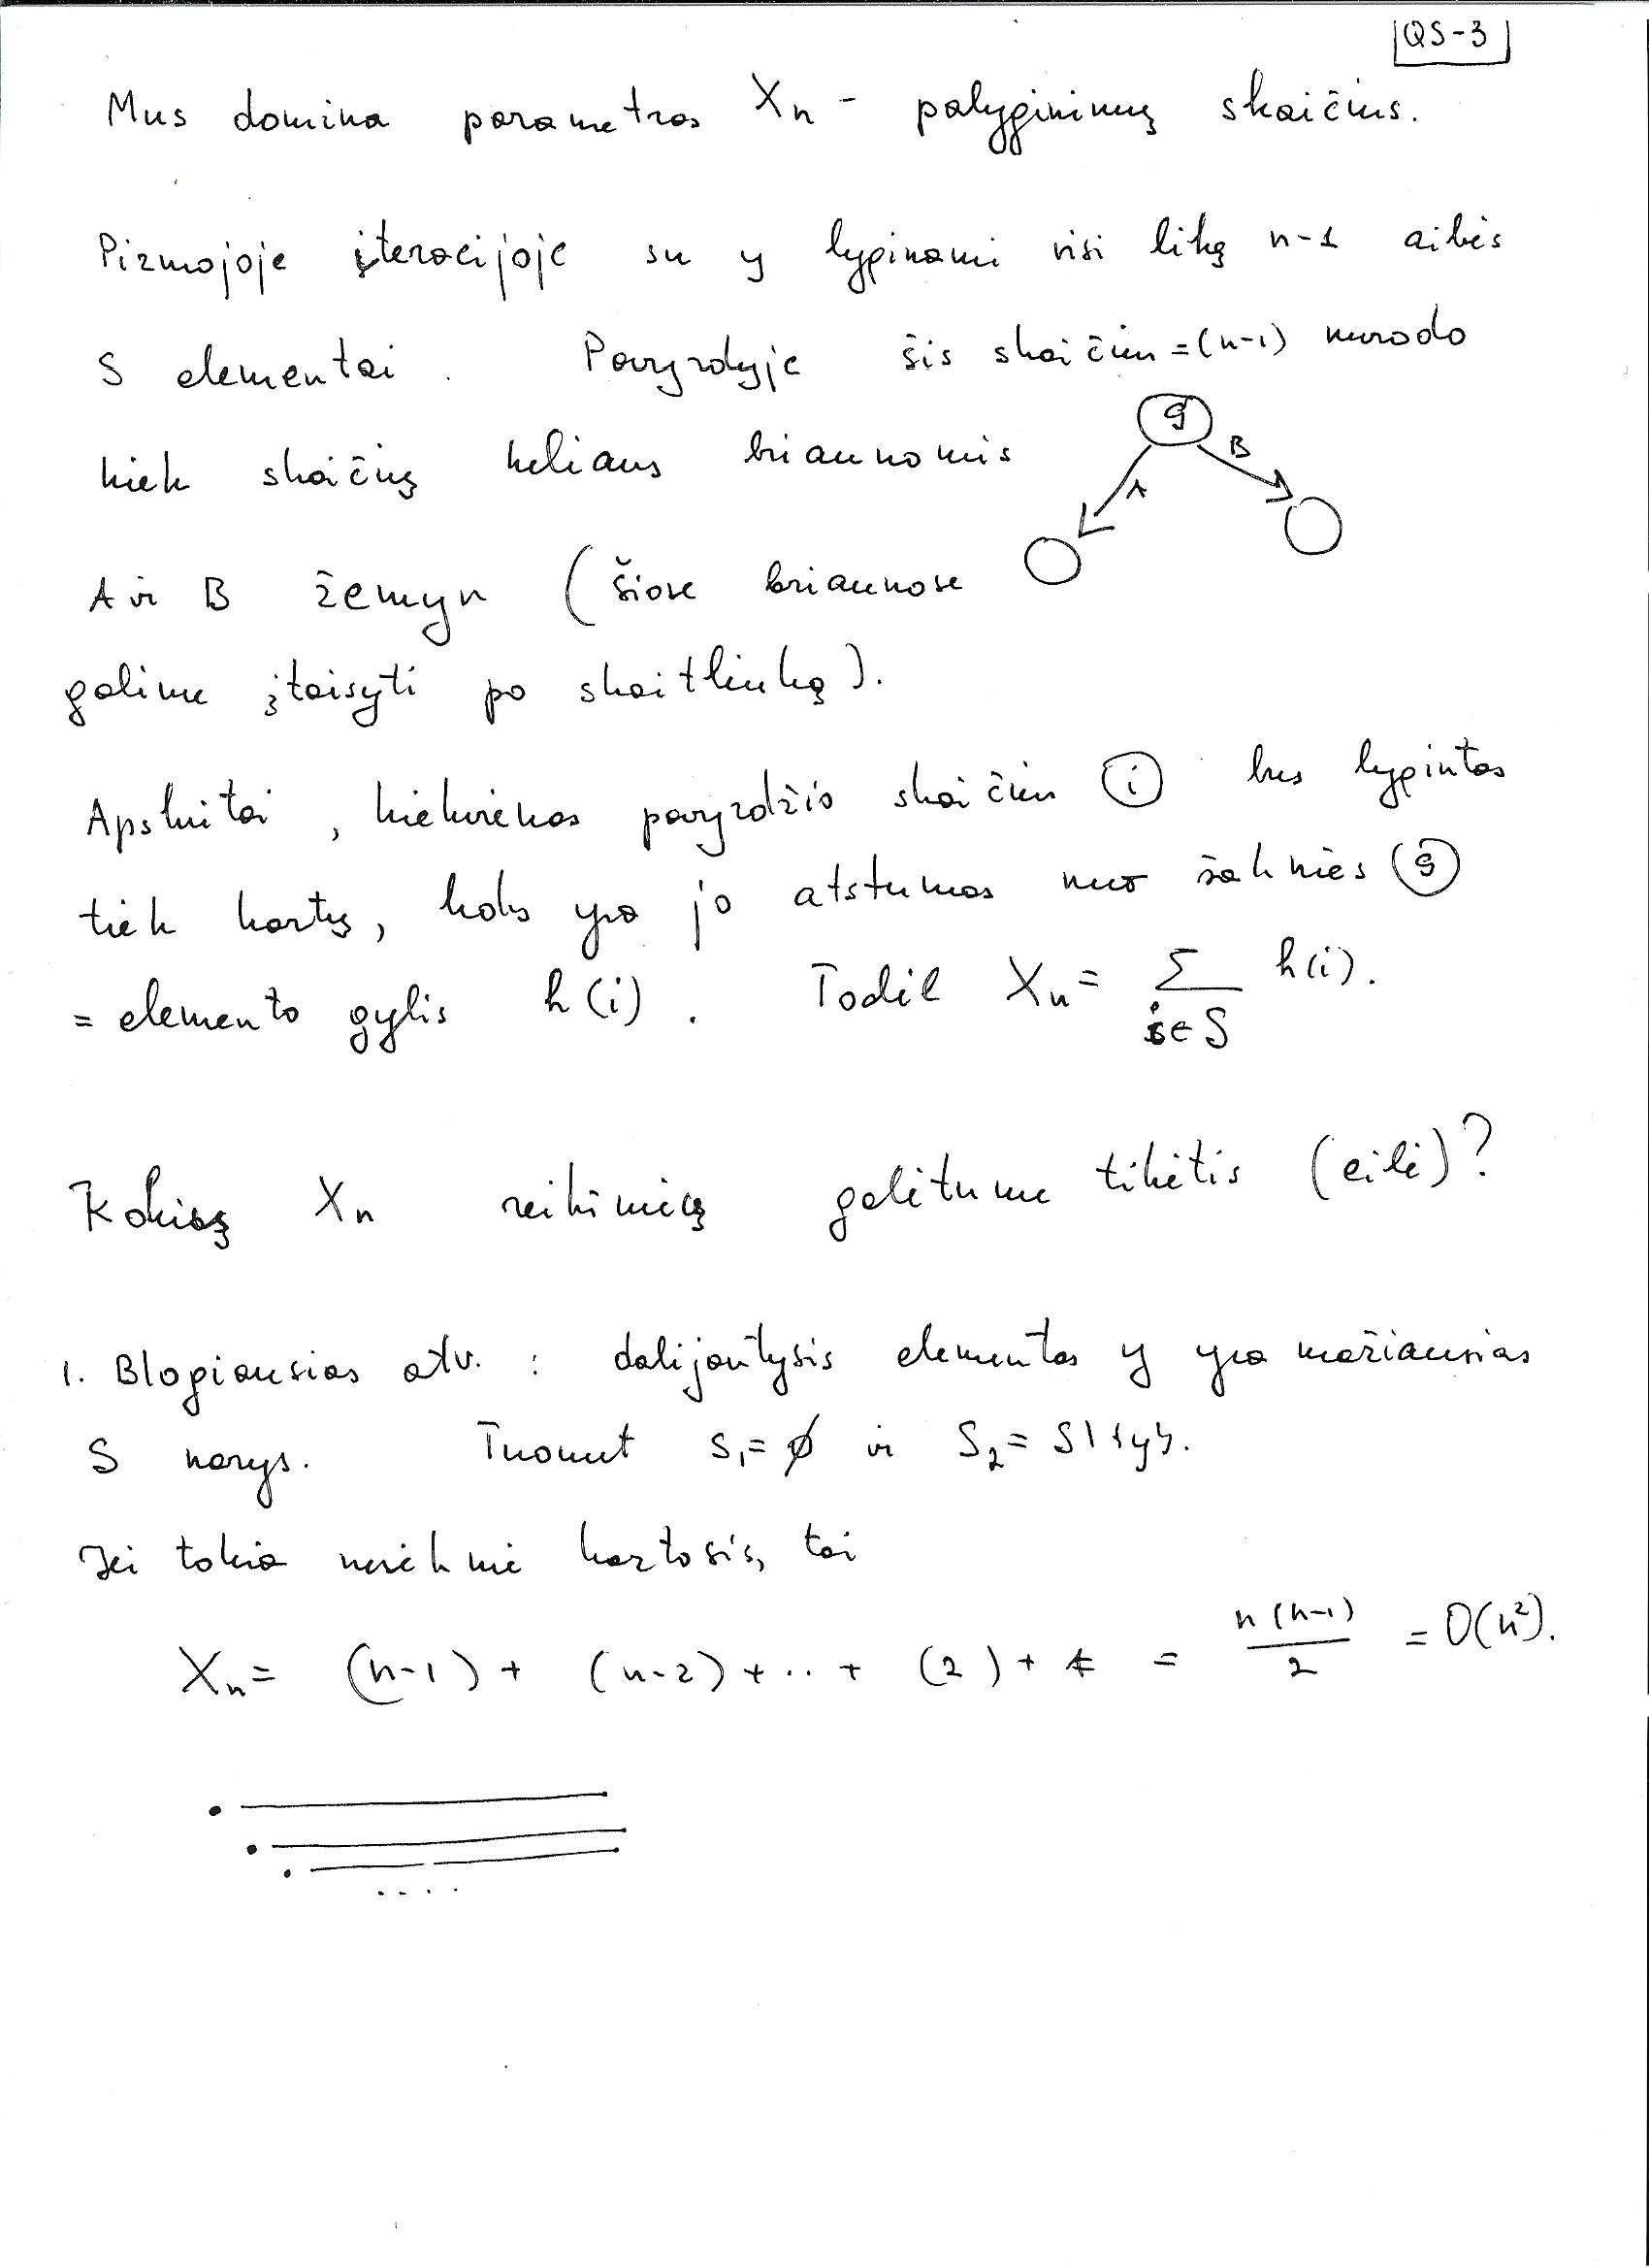 QS-3
Mus domina parametras Xn - palyginimų skaičius.
Pirmojoje iteracijoje su y lyginami visi likę n-1 aibės
S elementai. Pavyzdyje šis skaičius =(n-1) nurodo
kiek skaičių keliaus briaunomis
9
A
B
A ir B žemyn (šiose briaunose
galime įtaisyti po skaitliuką).
Apskritai, kiekvienas pavyzdžio skaičius i bus lygintas
tiek kartų, koks yra jo atstumas nuo šaknies 9
= elemento gylis h(i). Todėl Xn = Σ h(i).
i∈S
Kokių Xn reikšmių galėtume tikėtis (eilė)?
1. Blogiausias atv. : dalijantysis elementas y yra mažiausias
S narys. Tuomet S1=∅ ir S2= S\{y}.
Jei tokia nesėkmė kartosis, tai
Xn = (n-1) + (n-2) + .. + (2) + 1 = n(n-1)/2 = O(n²).
....